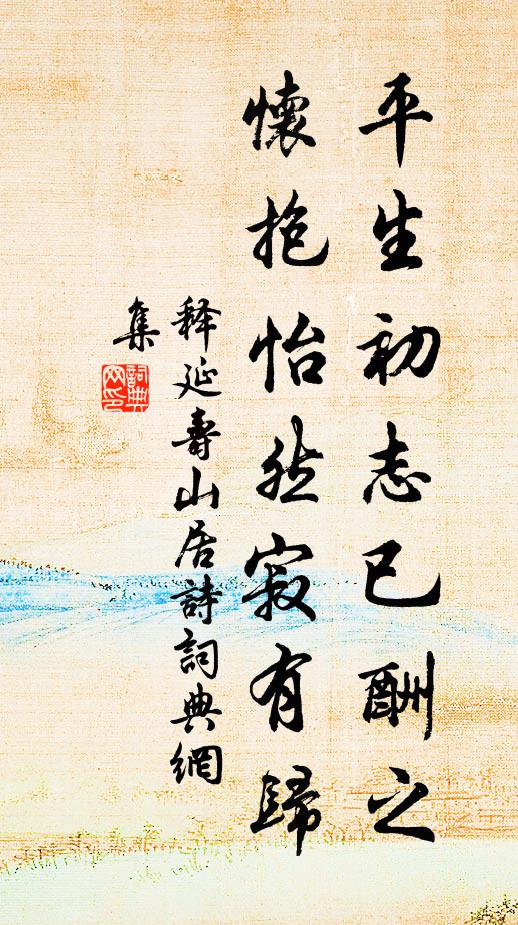 平生初志已酬之
懷抱怡然寂有歸
释延壽山居詩詞典網
集
詞典
网印